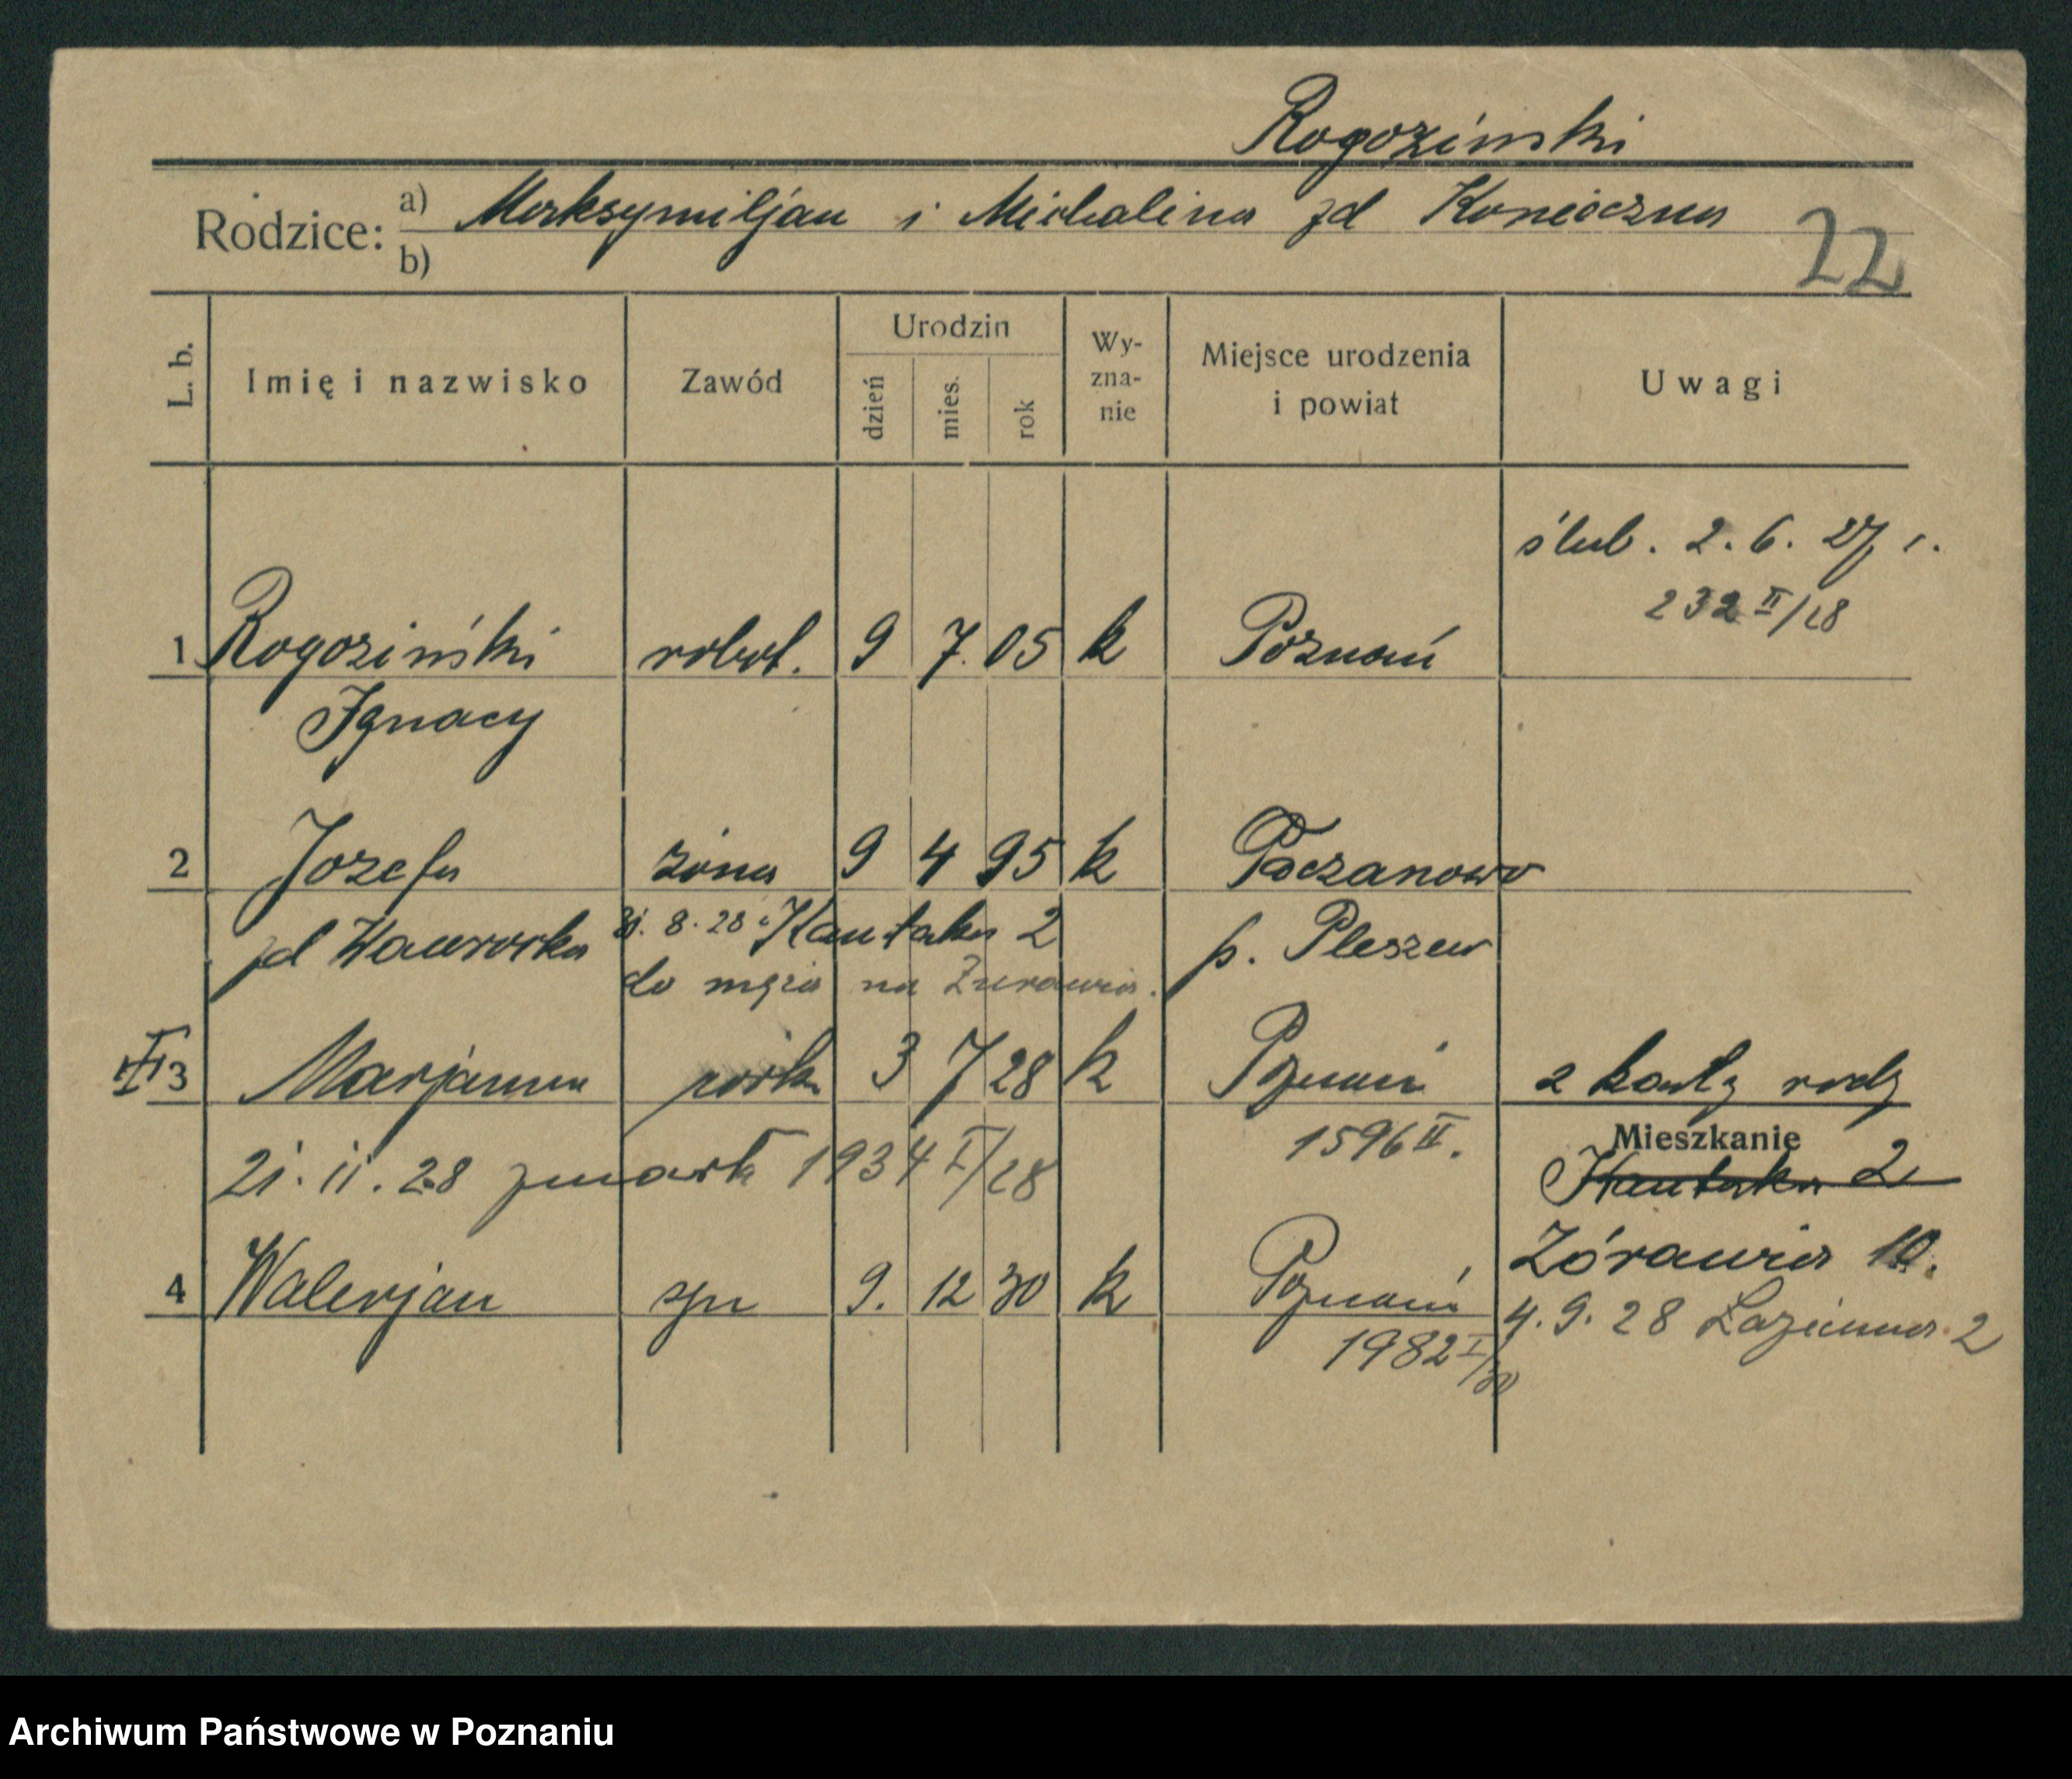 Rogoziński
Rodzice: a) Maksymiljan i Michalina zd Konieczna
b)
22
L. b. Imię i nazwisko Zawód Urodzin dzień mies. rok Wy-zna-nie Miejsce urodzenia i powiat Uwagi
ślub. 2. 6. 27 r.
232 II/28
1 Rogoziński robot. 9 7. 05 k Poznań
Ignacy
2 Józefa żona 9 4 95 k Taczanowo
zd Wawrocka 31. 8. 28 Kantaka 2 p. Pleszew
do męża na Żurawia.
3 Marjanna córka 3 7 28 k Poznań z karty rodz
1596 II.
Mieszkanie
21. 11. 28 zmarła 1934 I/28
Kantaka 2
Żórawia 10.
4 Walerjan syn 9. 12 30 k Poznań
4. 9. 28 Łazienna 2
1982 I/30
Archiwum Państwowe w Poznaniu